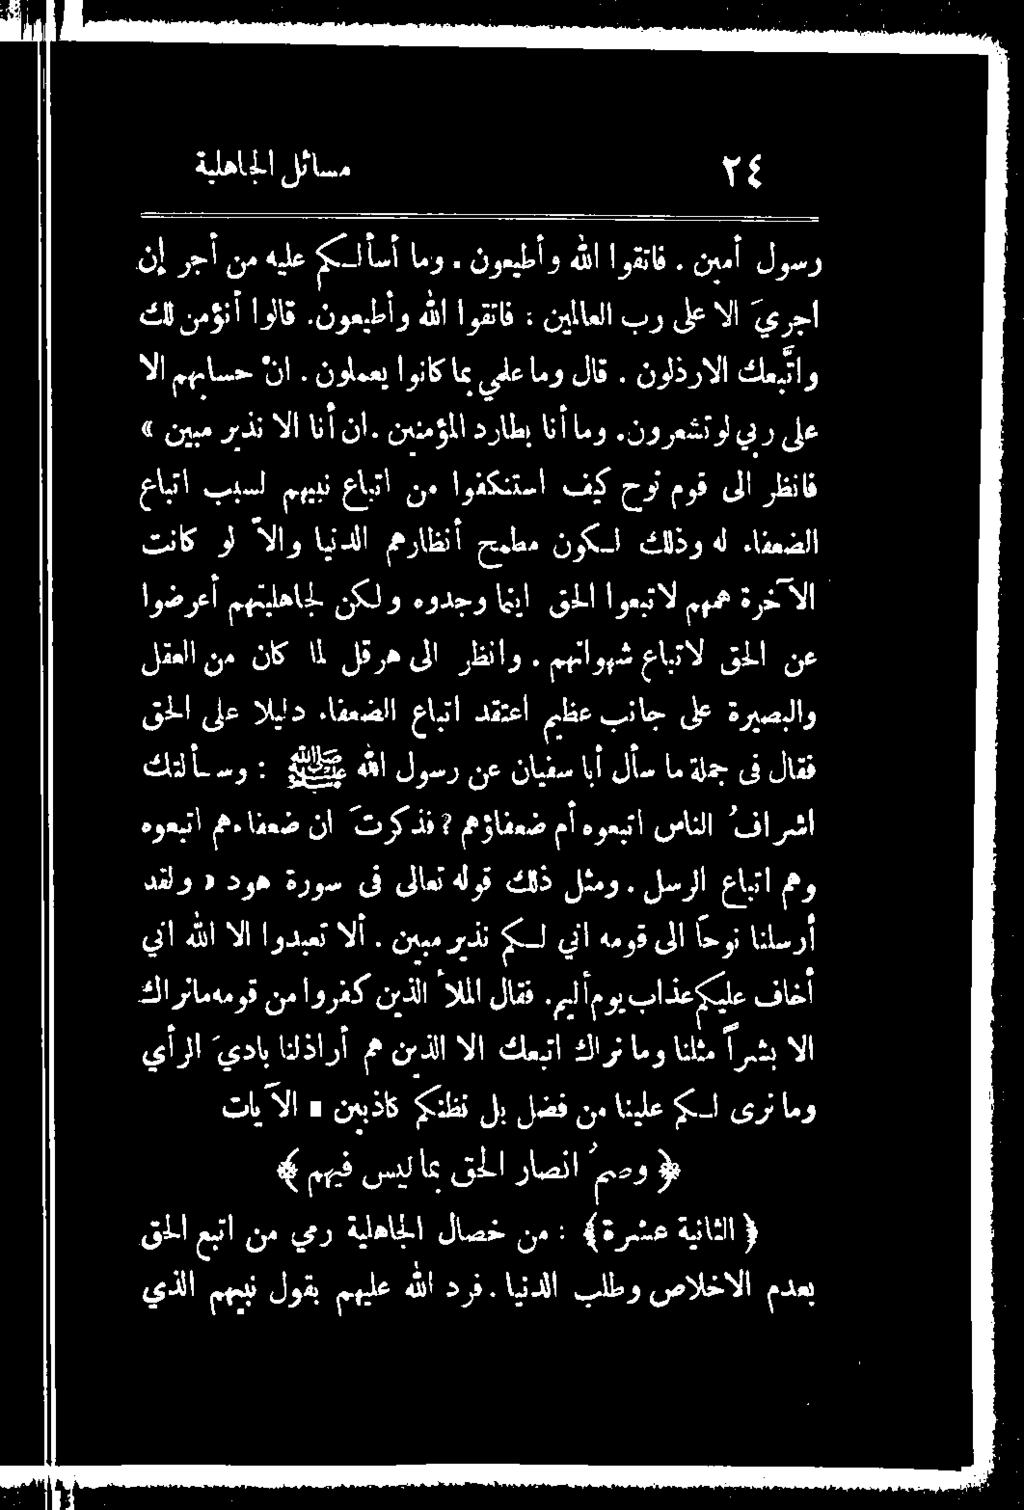 ٢٤ مسائل الجاهلية
رسول أمين . فاتقوا الله وأطيعون . وما أسألـكم عليه من أجر إن
اجريَ الا على رب العالمين : فاتقوا الله وأطيعون. قالوا أنؤمن لك
واتَّبعك الارذلون . قال وما علمي بما كانوا يعملون . انْ حسابهم الا
على ربي لو تشعرون. وما أنا بطارد المؤمنين . ان أنا الا نذير مبين »
فانظر الى قوم نوح كيف استنكفوا من اتباع نبيهم لسبب اتباع
الضعفاء له وذلك لـكون مطمح أنظارهم الدنيا والاّ لو كانت
الآخرة همهم لاتبعوا الحق اينما وجدوه ولكن لجاهليتهم أعرضوا
عن الحق لاتباع شهواتهم . وانظر الى هرقل لما كان من العقل
والبصيرة على جانب عظيم اعتقد اتباع الضعفاء دليلا على الحق
فقال فى جملة ما سأل أبا سفيان عن رسول الله ﷺ : وسـألتك
اشرافُ الناس اتبعوه أم ضعفاؤهم ؟ فذكرتَ ان ضعفاءهم اتبعوه
وهم اتباع الرسل . ومثل ذلك قوله تعالى فى سورة هود « ولقد
أرسلنا نوحاً الى قومه اني لـكم نذير مبين . ألا تعبدوا الا الله اني
أخاف عليكم عذاب يوم أليم. فقال الملأ الذين كفروا من قومه ما نراك
الا بشراً مثلنا وما نراك اتبعك الا الذين هم أراذلنا باديَ الرأي
وما نرى لـكم علينا من فضل بل نظنكم كاذبين » الآيات
﴿ وصمُ انصار الحق بما ليس فيهم ﴾
﴿ الثانية عشرة ﴾ : من خصال الجاهلية رمي من اتبع الحق
بعدم الاخلاص وطلب الدنيا . فرد الله عليهم بقول نبيهم الذي